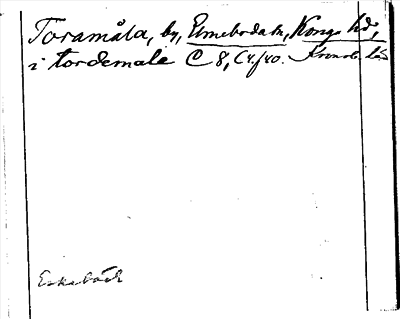 Toramåla, by, Elmeboda sn, Konga hd,
i tordemale C 8, C 4. f 40. Kronob. län